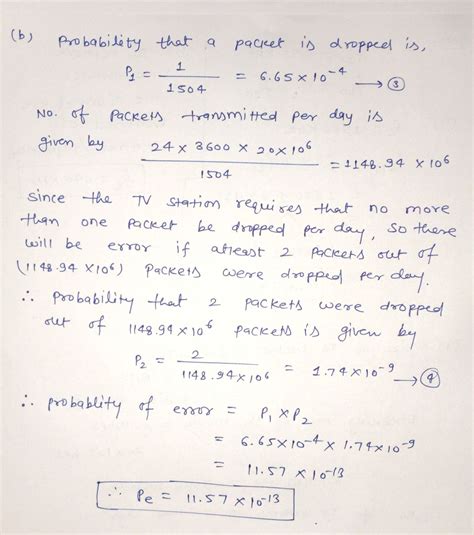 (b) Probability that a packet is dropped is,
P1 = 1/1504 = 6.65 × 10^-4 → ③
No. of Packets transmitted per day is
given by 24 × 3600 × 20×10^6 / 1504 = 1148.94 × 10^6
since the TV station requires that no more
than one Packet be dropped per day, so there
will be error if atleast 2 Packets out of
(1148.94 ×10^6) Packets were dropped per day.
∴ Probability that 2 packets were dropped
out of 1148.94 × 10^6 packets is given by
P2 = 2/1148.94×10^6 = 1.74×10^-9 → ④
∴ probablity of error = P1 × P2
= 6.65×10^-4 × 1.74×10^-9
= 11.57 × 10^-13
∴ Pe = 11.57 × 10^-13